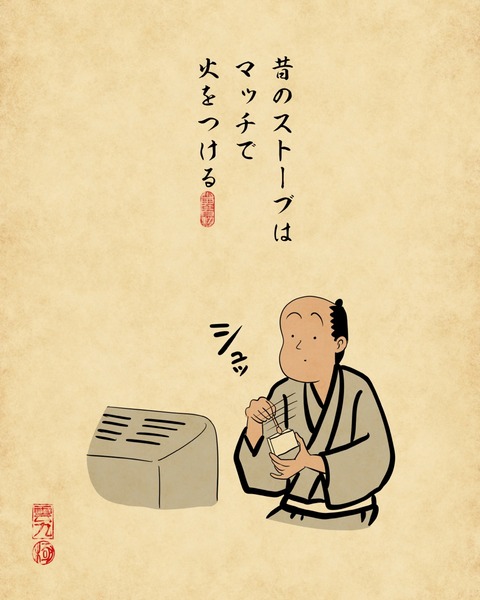 昔のストーブは
マッチで
火をつける
シュッ